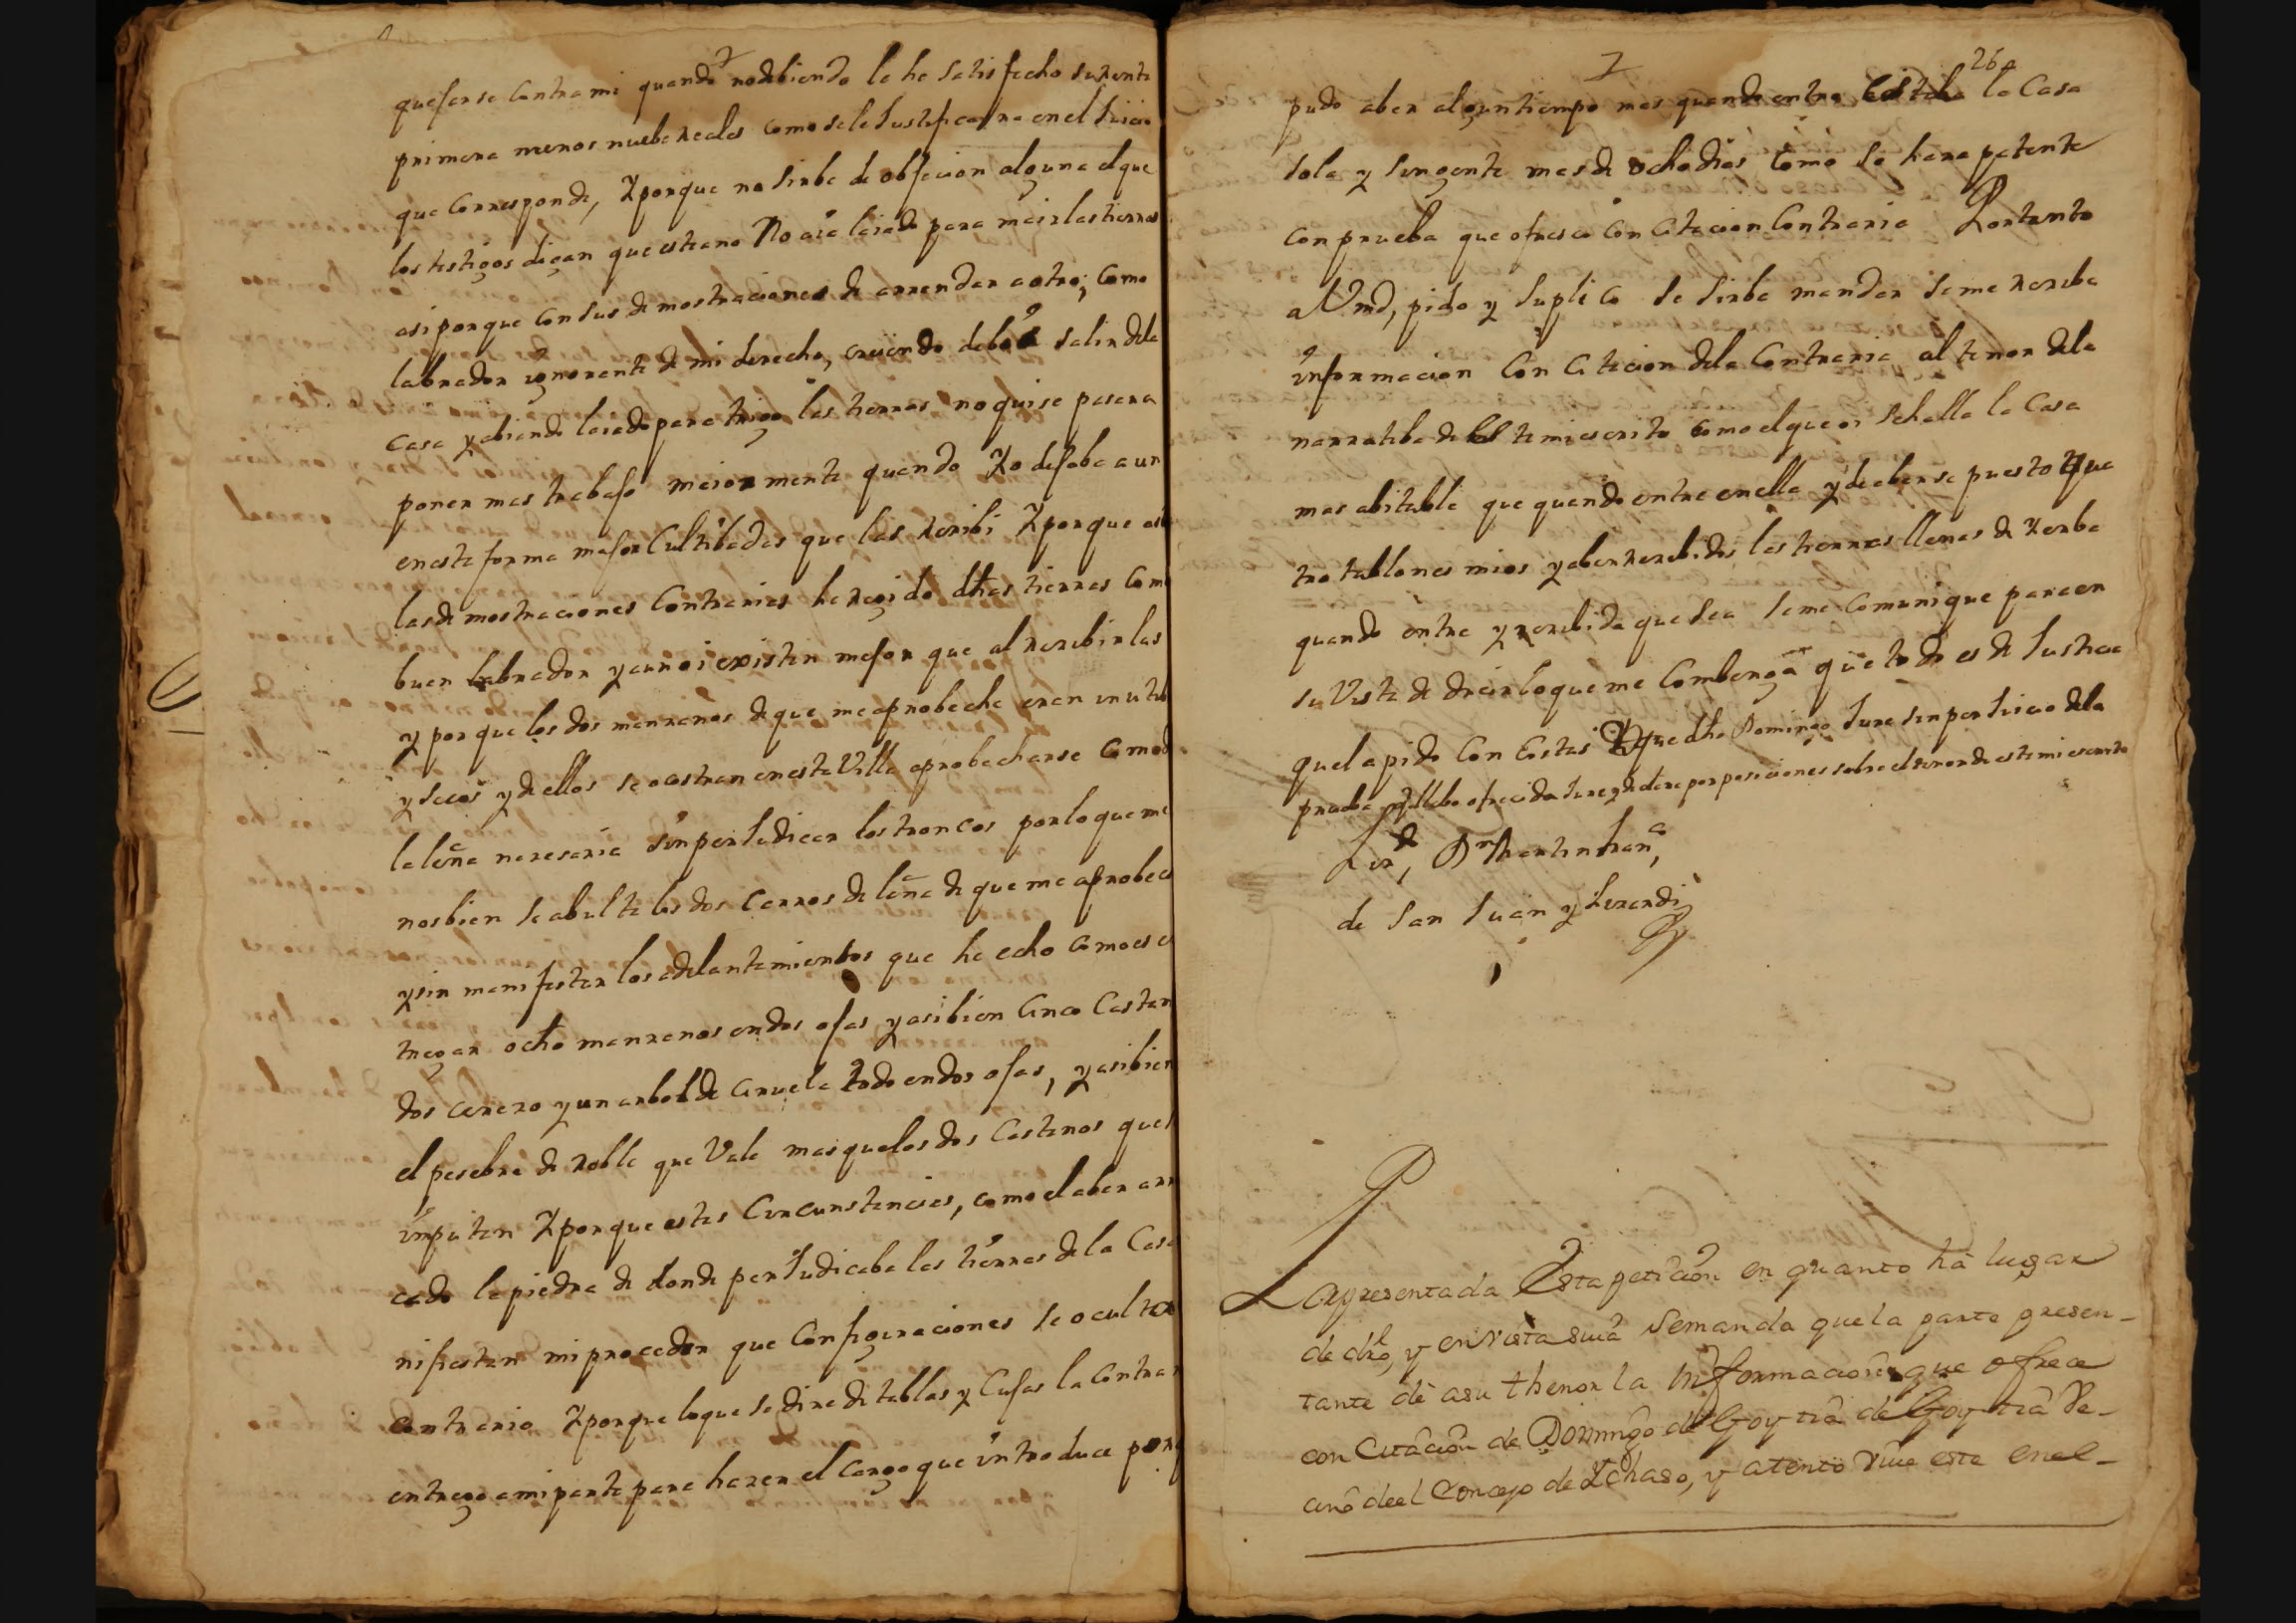 quejarse Contra mi quando no debiendo le he satisfecho su renta
primera menos nuebe reales como se le Justificara en el Juicio
que Corresponde, Y porque no sirbe de objecion alguna el que
los testigos digan que estrano No aia laiado para maiz las tierras
asi porque con sus demostraciones de arrendar a otro, como
labrador ygnorante de mi derecho, creiendo debo salir dela
Casa y abiendo laiado para trigo las tierras no quise pasar a
poner mas trabajo maiormente quando Yo dejaba aun
en esta forma mejor Cultibadas que las recibi Y porque asta
las demostraciones Contrarias he regido dhas tierras Como
buen labrador y aun oi existen mejor que al recibir las
y porque los dos manzanos de que me aprobeche eran inutiles
y secos y de ellos se acostumbran en esta Villa aprobecharse Como de
la leña nezesaria sin perJudicar los troncos por lo que me
nos bien se abulta los dos Carros de leña de que me aprobeche
y sin manifestar los adelantamientos que he echo Como es en
tregar ocho manzanos en dos ojas y asi bien Cinco Castan
dos cerezo y un arbol de ciruela todo en dos ojas, y asi bien
el pesebre de roble que Vale mas que los dos Castanos que
imputan Y porque estas Circunstancias, como el aber arran
cado la piedra de donde perJudicaba las tierras de la Casa
nifiestan mi proceder que Configuraciones se ocultan
contrario Y porque lo que se dize de tablas y Cujas la Contra
entrego a mi parte para hazer el Cargo que introduce porq
260
pudo aber algun tiempo mas quando entro Estaba la Casa
sola y sin gente mas de ocho dias Como se hara patente
con prueba que ofresco Con Citacion Contraria Por tanto
a Vmd, pido y suplico se sirba mandar se me reciba
informacion Con Citacion dela Contraria al tenor dela
narratiba de Este mi escrito como el que oi se halla la Casa
mas abitable que quando entre en ella y de aberse puesto qua
tro tablones mios y aber recibidos las tierras llenas de Yerba
quando entre y recibida que sea se me Comunique para en
su Vista de dezir lo que me Combenga que todo es de Justicia
que la pido Con Costas Y que dho Domingo Jure sin perJuicio dela
prueba que llebo ofrecida Jure y declare por posiciones sobre el tenor de este mi escrito
Lizdo, Dn Martin Franco,
de San Juan y Lizardi
Por presentada Esta petiçion en quanto hà lugar
de drò, y en vista suia se manda que la parte presen-
tante dè a su thenor la Informacion que ofrece
con Citacion de Domingo de Goytia de Goytia Ve-
cino deel Concejo de Ichaso, y atento vive este en el-